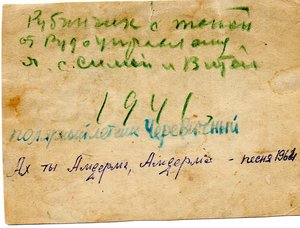 Рубинчик с женой
от Рудоуправления
я, с Симой и Витей
1941
полярный летчик Черевичный
Ах ты Амдерма, Амдерма - песня 1960г